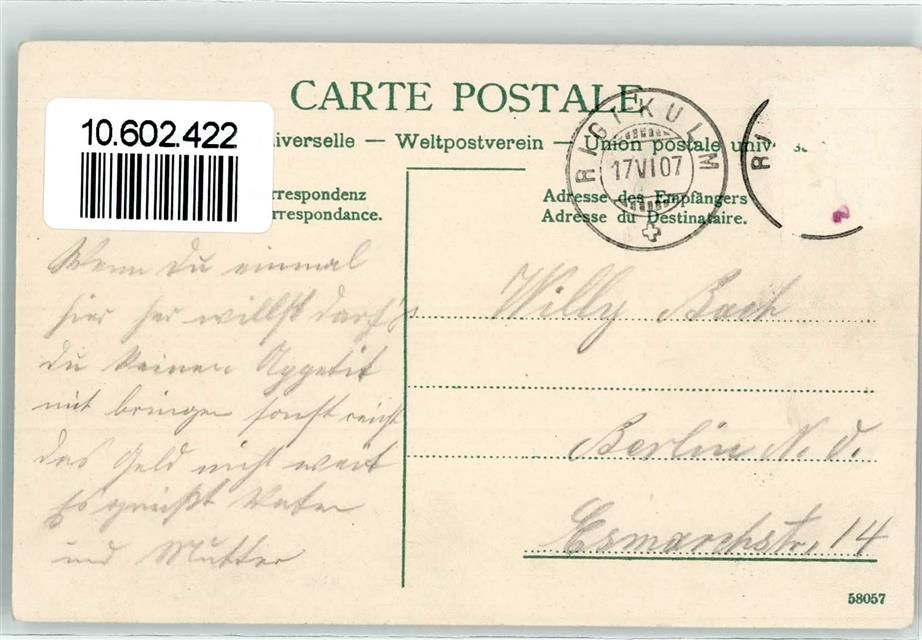 CARTE POSTALE
10.602.422
iverselle — Weltpostverein — Union postale unive s
RIGI-KULM
17 VI 07
R
rrespondenz
rrespondance.
Adresse des Empfängers
Adresse du Destinataire.
Wenn du einmal
hier her willst darfst
du keinen Appetit
mit bringen sonst reicht
das Geld nicht weit
Es grüßt Vater
und Mutter
Willy Bach
Berlin N. O.
Esmarchstr. 14
58057